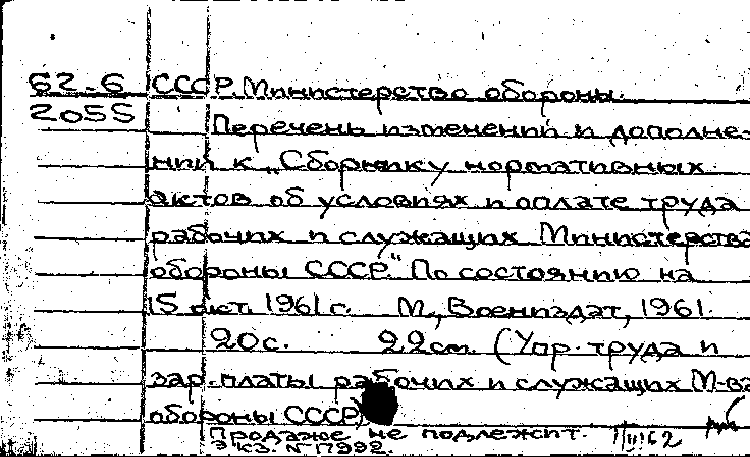 62-6 СССР. Министерство обороны.
2055 Перечень изменений и дополне-
ний к „Сборнику нормативных
актов об условиях и оплате труда
рабочих и служащих Министерства
обороны СССР." По состоянию на
15 окт. 1961 г. М., Воениздат, 1961.
20 с. 22 см. (Упр. труда и
зар. платы рабочих и служащих М-ва
обороны СССР)
Продаже не подлежит. 1/III 62
Экз. №